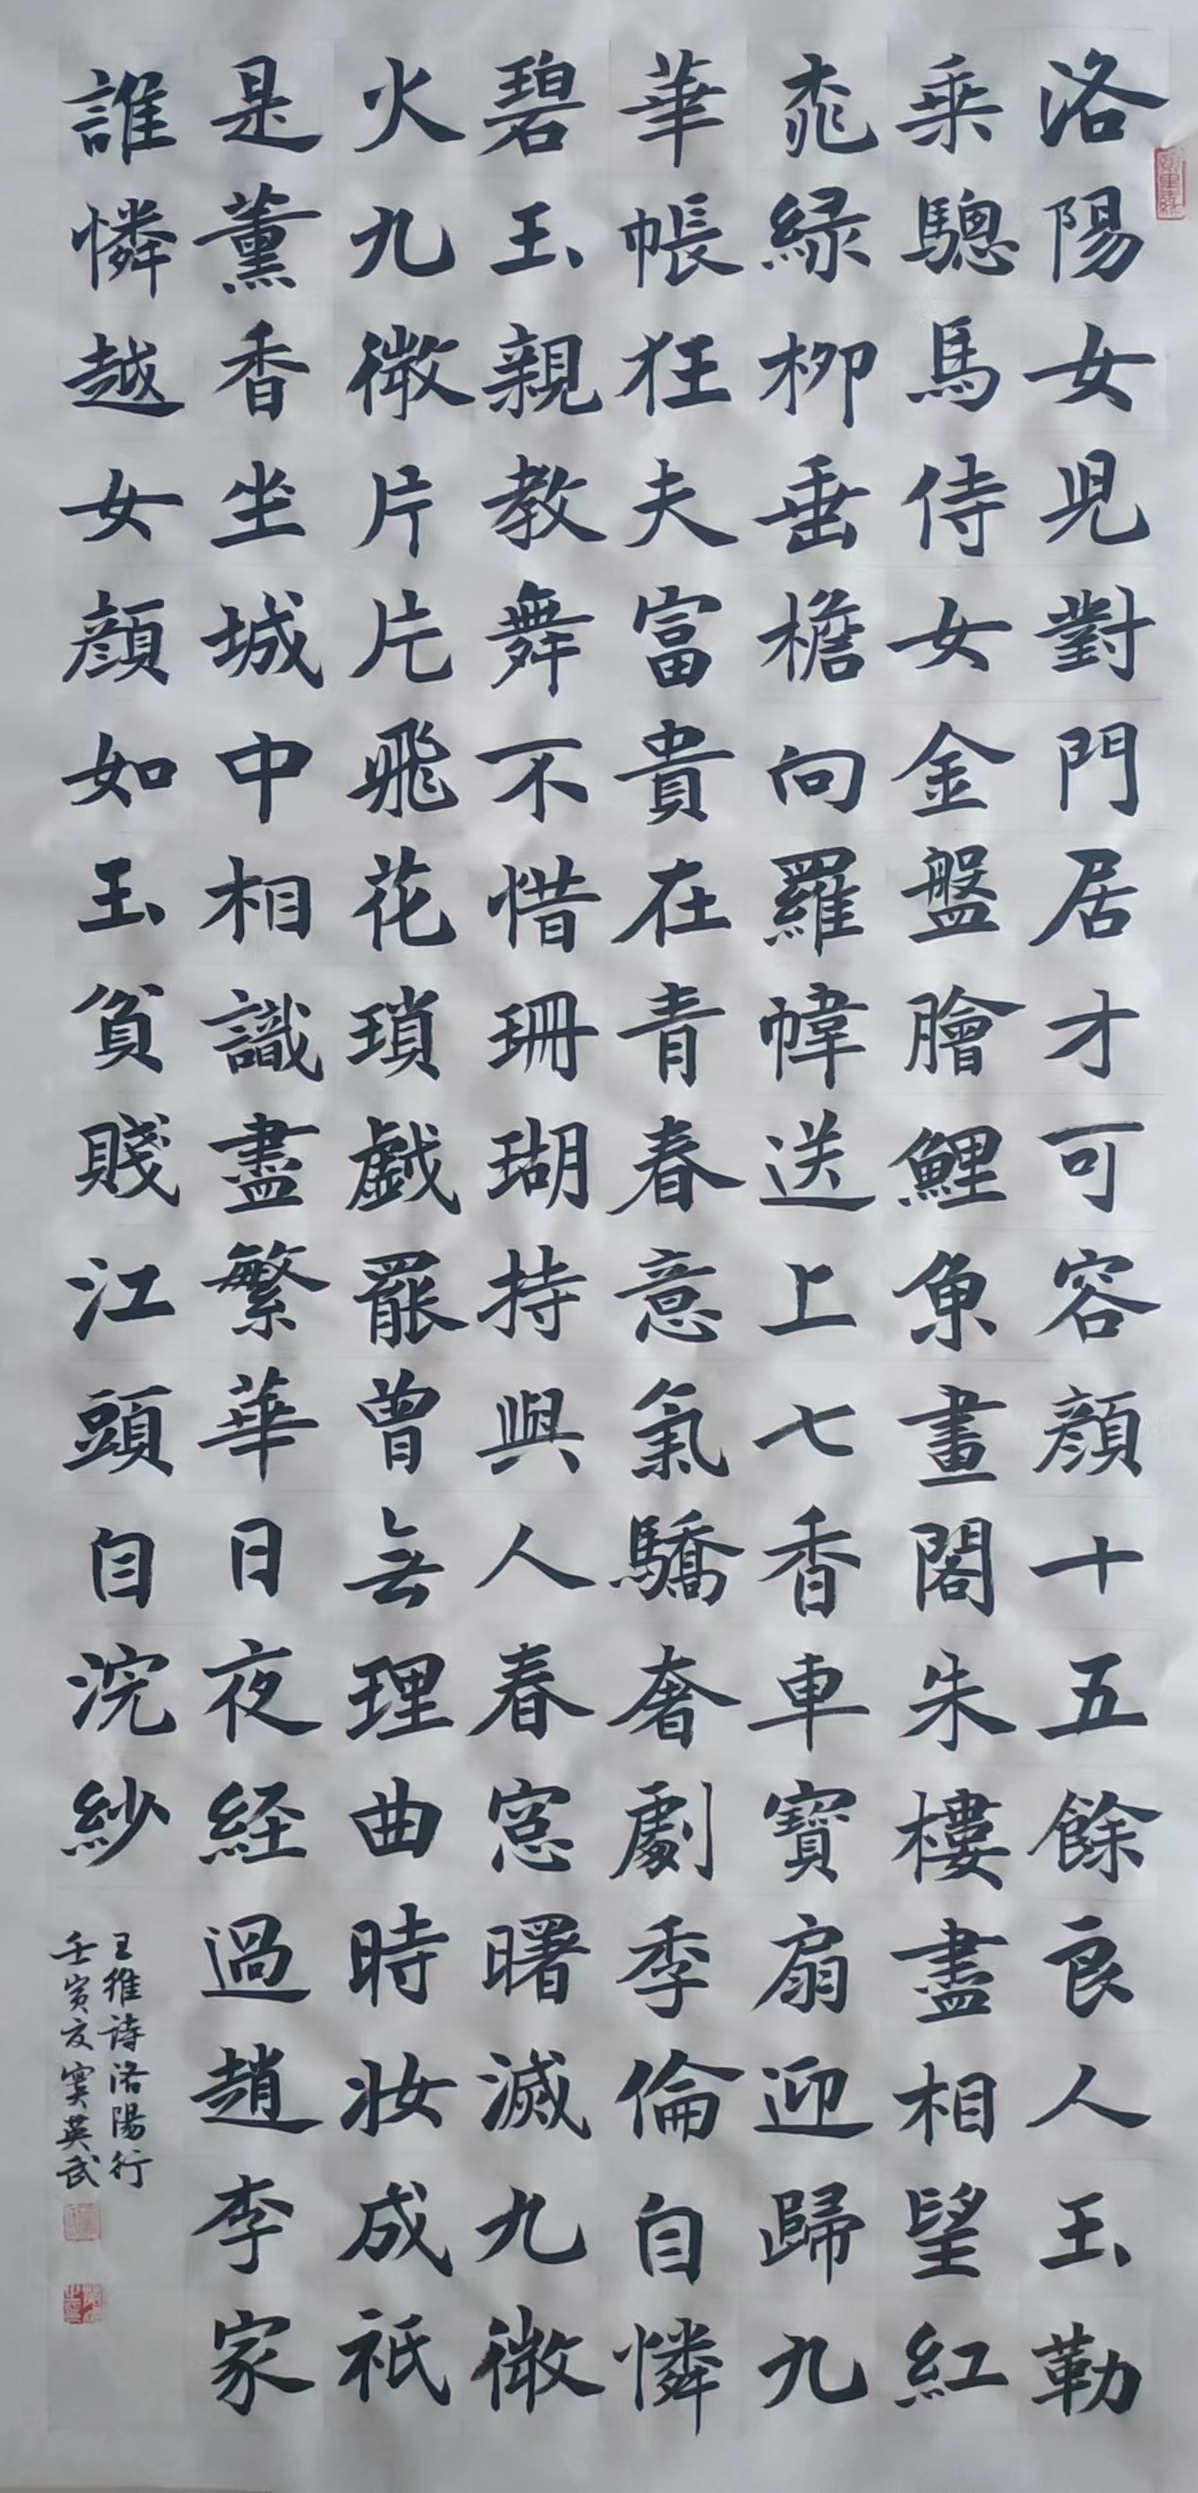 洛陽女児對門居才可容顔十五餘良人玉勒
乗驄馬侍女金盤膾鯉魚畫閣朱樓盡相望紅
桃緑柳垂檐向羅幃送上七香車寶扇迎歸九
華帳狂夫富貴在青春意氣驕奢劇季倫自憐
碧玉親教舞不惜珊瑚持與人春窓曙滅九微
火九微片片飛花瑣戯罷曾無理曲時妝成祇
是薰香坐城中相識盡繁華日夜経過趙李家
誰憐越女顔如玉貧賤江頭自浣紗
王維詩洛陽行
壬寅夏竇英武